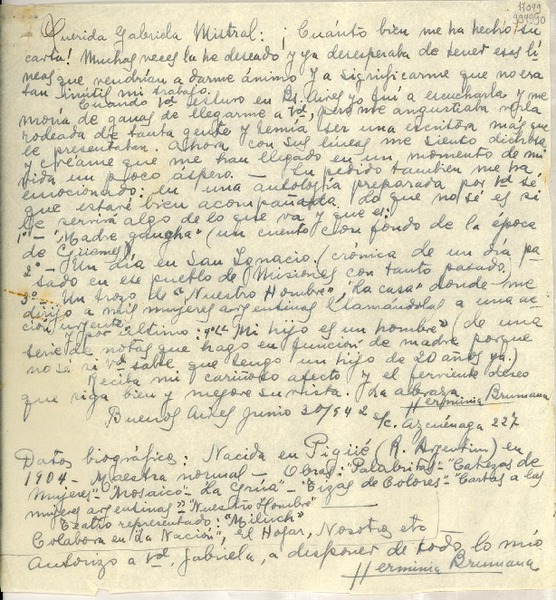 17049
994990
Querida Gabriela Mistral: ¡Cuánto bien me ha hecho su
carta! Muchas veces la he deseado y ya desesperaba de tener esas lí-
neas que vendrían a darme ánimo y a significarme que no era
tan inútil mi trabajo.
Cuando Vd. estuvo en Bs. Aires yo fuí a escucharla y me
moría de ganas de llegarme a Vd, pero me angustiaba verla
rodeada de tanta gente y temía ser una escritora más que
le presentaban. Ahora con sus líneas me siento dichosa
y créame que me han llegado en un momento de mi
vida un poco áspero. — Su pedido también me ha
emocionado: en una antología preparada por Vd. sé
que estaré bien acompañada. Lo que no sé es si
le servirá algo de lo que va y que es:
1º— "Madre gaucha" (un cuento con fondo de la época
de Güemes)
2º— Un día en San Ignacio. (crónica de un día pa-
sado en ese pueblo de Misiones con tanto pasado)
3º— Un trozo de "Nuestro Hombre" "La casa" donde me
dirijo a mis mujeres argentinas llamándolas a una ac-
ción urgente.
Y por último: 4º "Mi hijo es un hombre" (de una
serie de notas que hago en función de madre porque
no sé si Vd. sabe que tengo un hijo de 20 años ya.)
Reciba mi cariñoso afecto y el ferviente deseo
que siga bien y mejore su vista. La abraza
Herminia Brumana
Buenos Aires Junio 30/942
S/c. Azcuénaga 227
Datos biográficos: Nacida en Pigüé (R. Argentina) en
1904 — Maestra normal — Obras: "Palabritas" — "Cabezas de
Mujeres" — "Mosaico" — "La Grúa" — "Tizas de Colores" — "Cartas a las
mujeres argentinas" — "Nuestro Hombre"
Teatro representado: "Miluch"
Colabora en "La Nación", El Hogar, Nosotros etc
Autorizo a Vd, Gabriela, a disponer de todo lo mío
Herminia Brumana